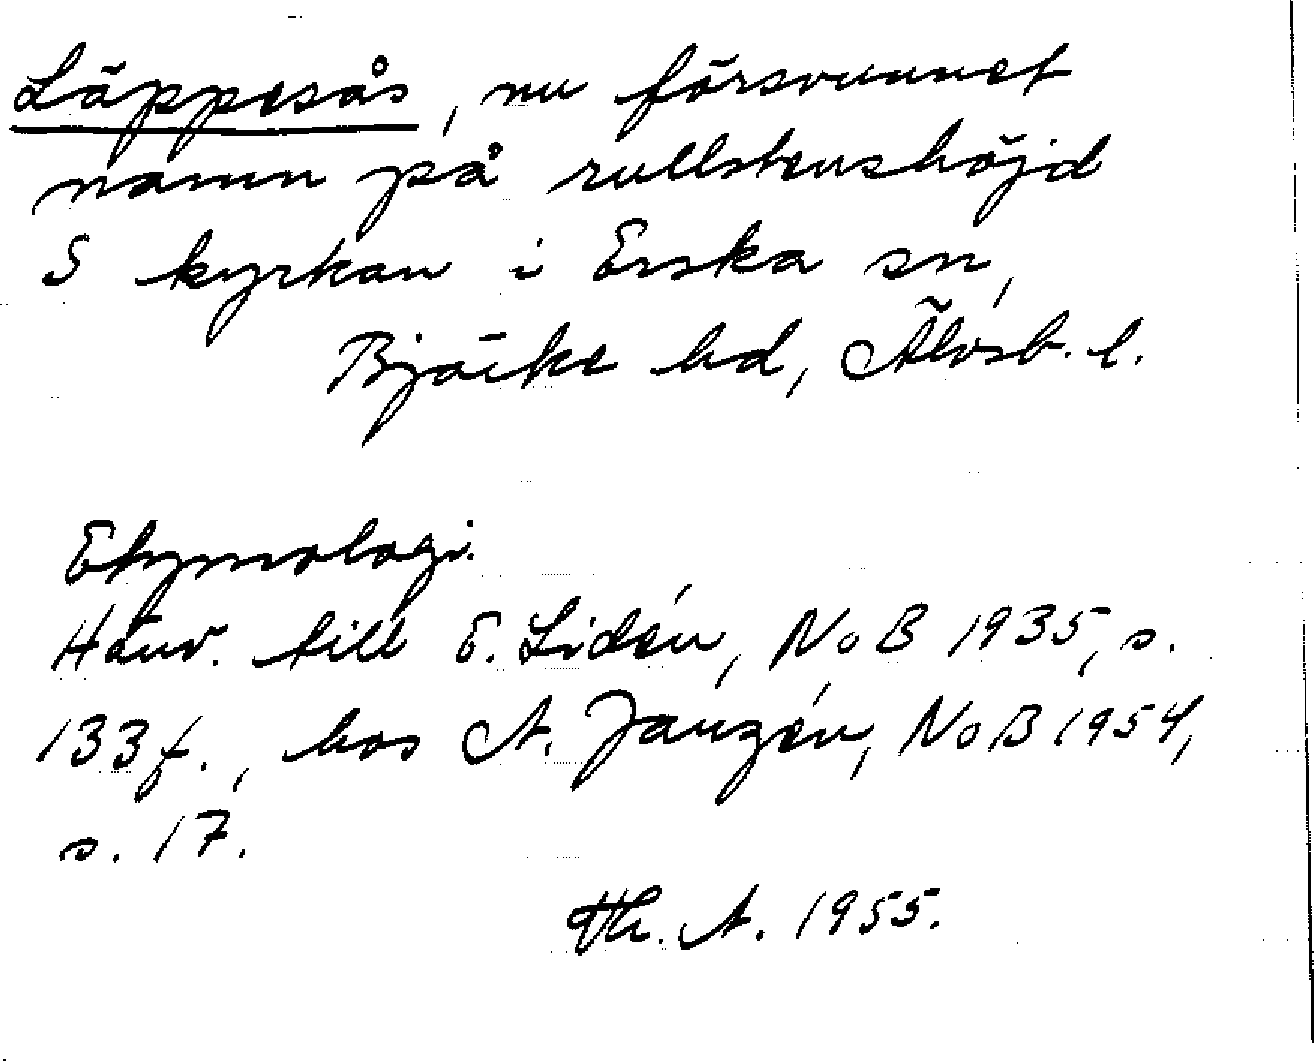 Läppesås, nu försvunnet
namn på rullstenshöjd
S kyrkan i Erska sn,
Bjärke hd, Älvsb. l.
Etymologi.
Hänv. till E. Lidén, NoB 1935, s.
133f., hos A. Janzén, NoB 1954,
s. 17.
Th. A. 1955.